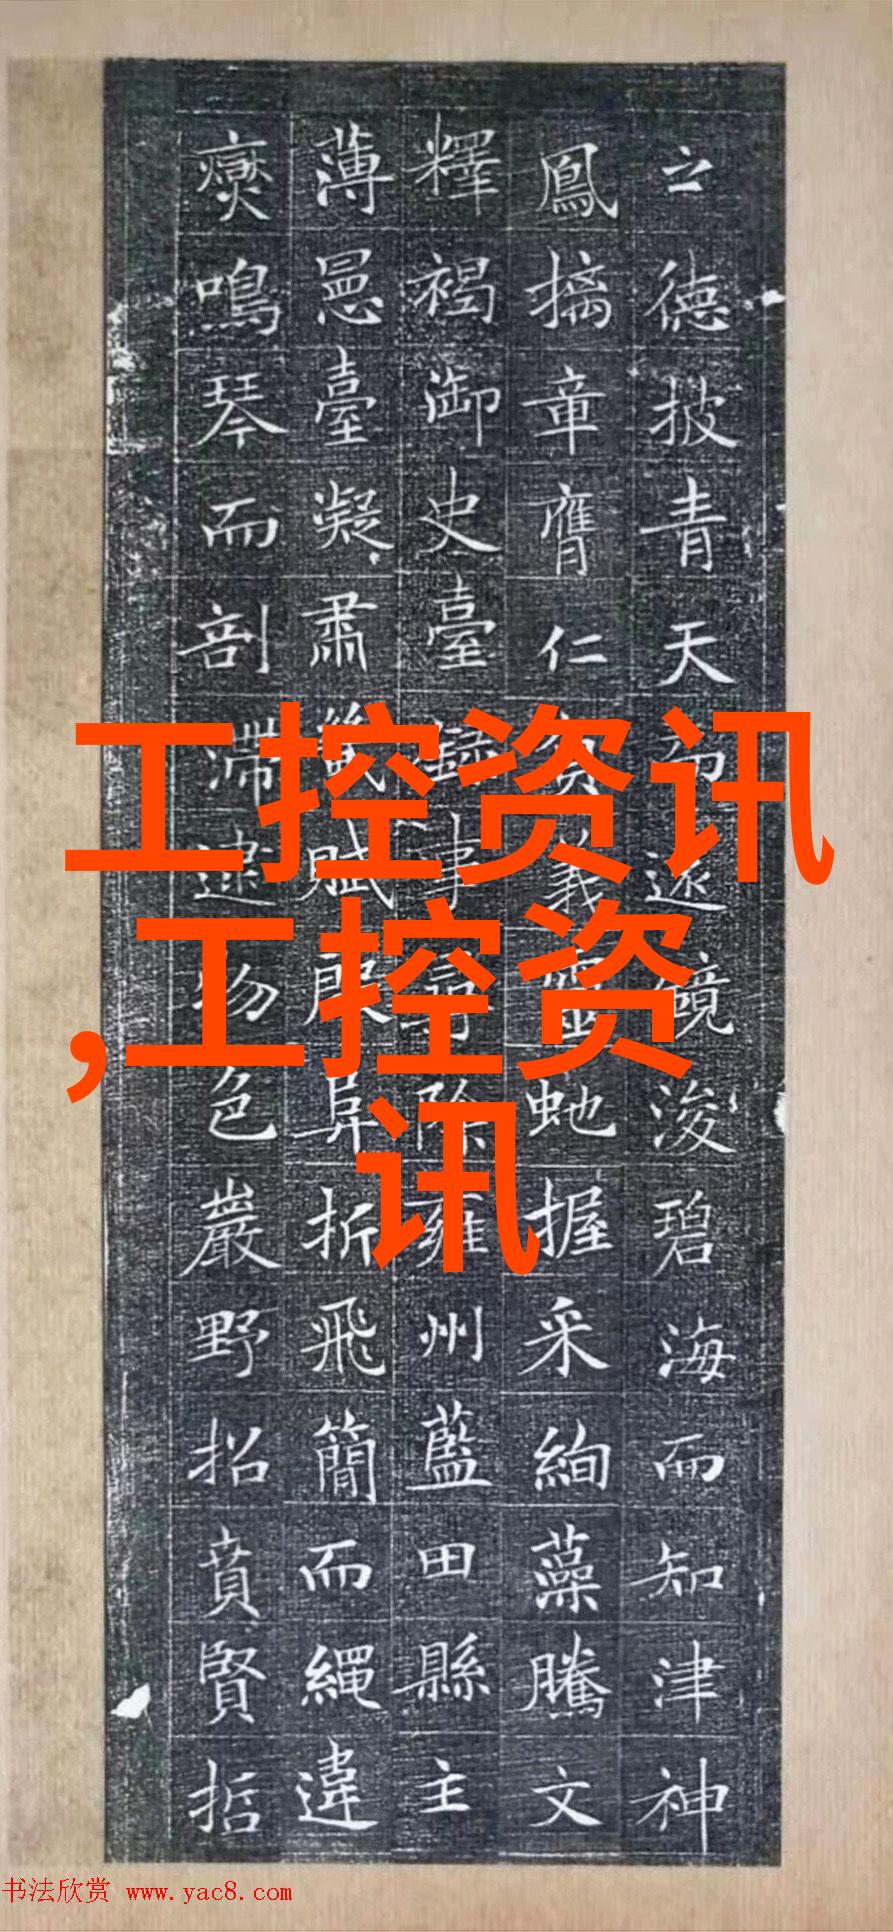 之德披青天而遠鏡浚碧海而知津神
鳳摛章膺仁負義靈虵握采絢藻騰文
釋褐御史臺録事尋除雍州藍田縣主
薄臺凝肅賦折飛簡而繩違
鳴琴而剖滯逮物色巖野招賁賢哲
工控资讯
,工控资
讯
书法欣赏 www.yac8.com